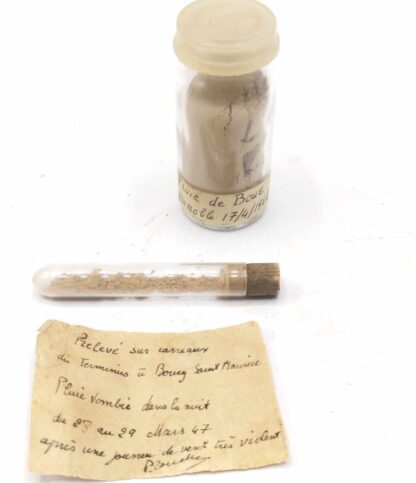 Pluie de Boue
Grenoble 17/4/19
Prelevé sur carreaux
du Terminus à Bourg Saint Maurice
Pluie tombée dans la nuit
du 28 au 29 Mars 47
après une journée de vent très violent